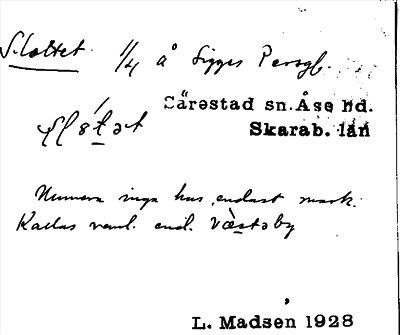 Slottet. 1/4 å Sigges Persg.
Särestad sn. Åse hd.
Skarab. län
Numera inga hus, endast mark.
Kallas vanl. end. Västəby
L. Madsen 1928